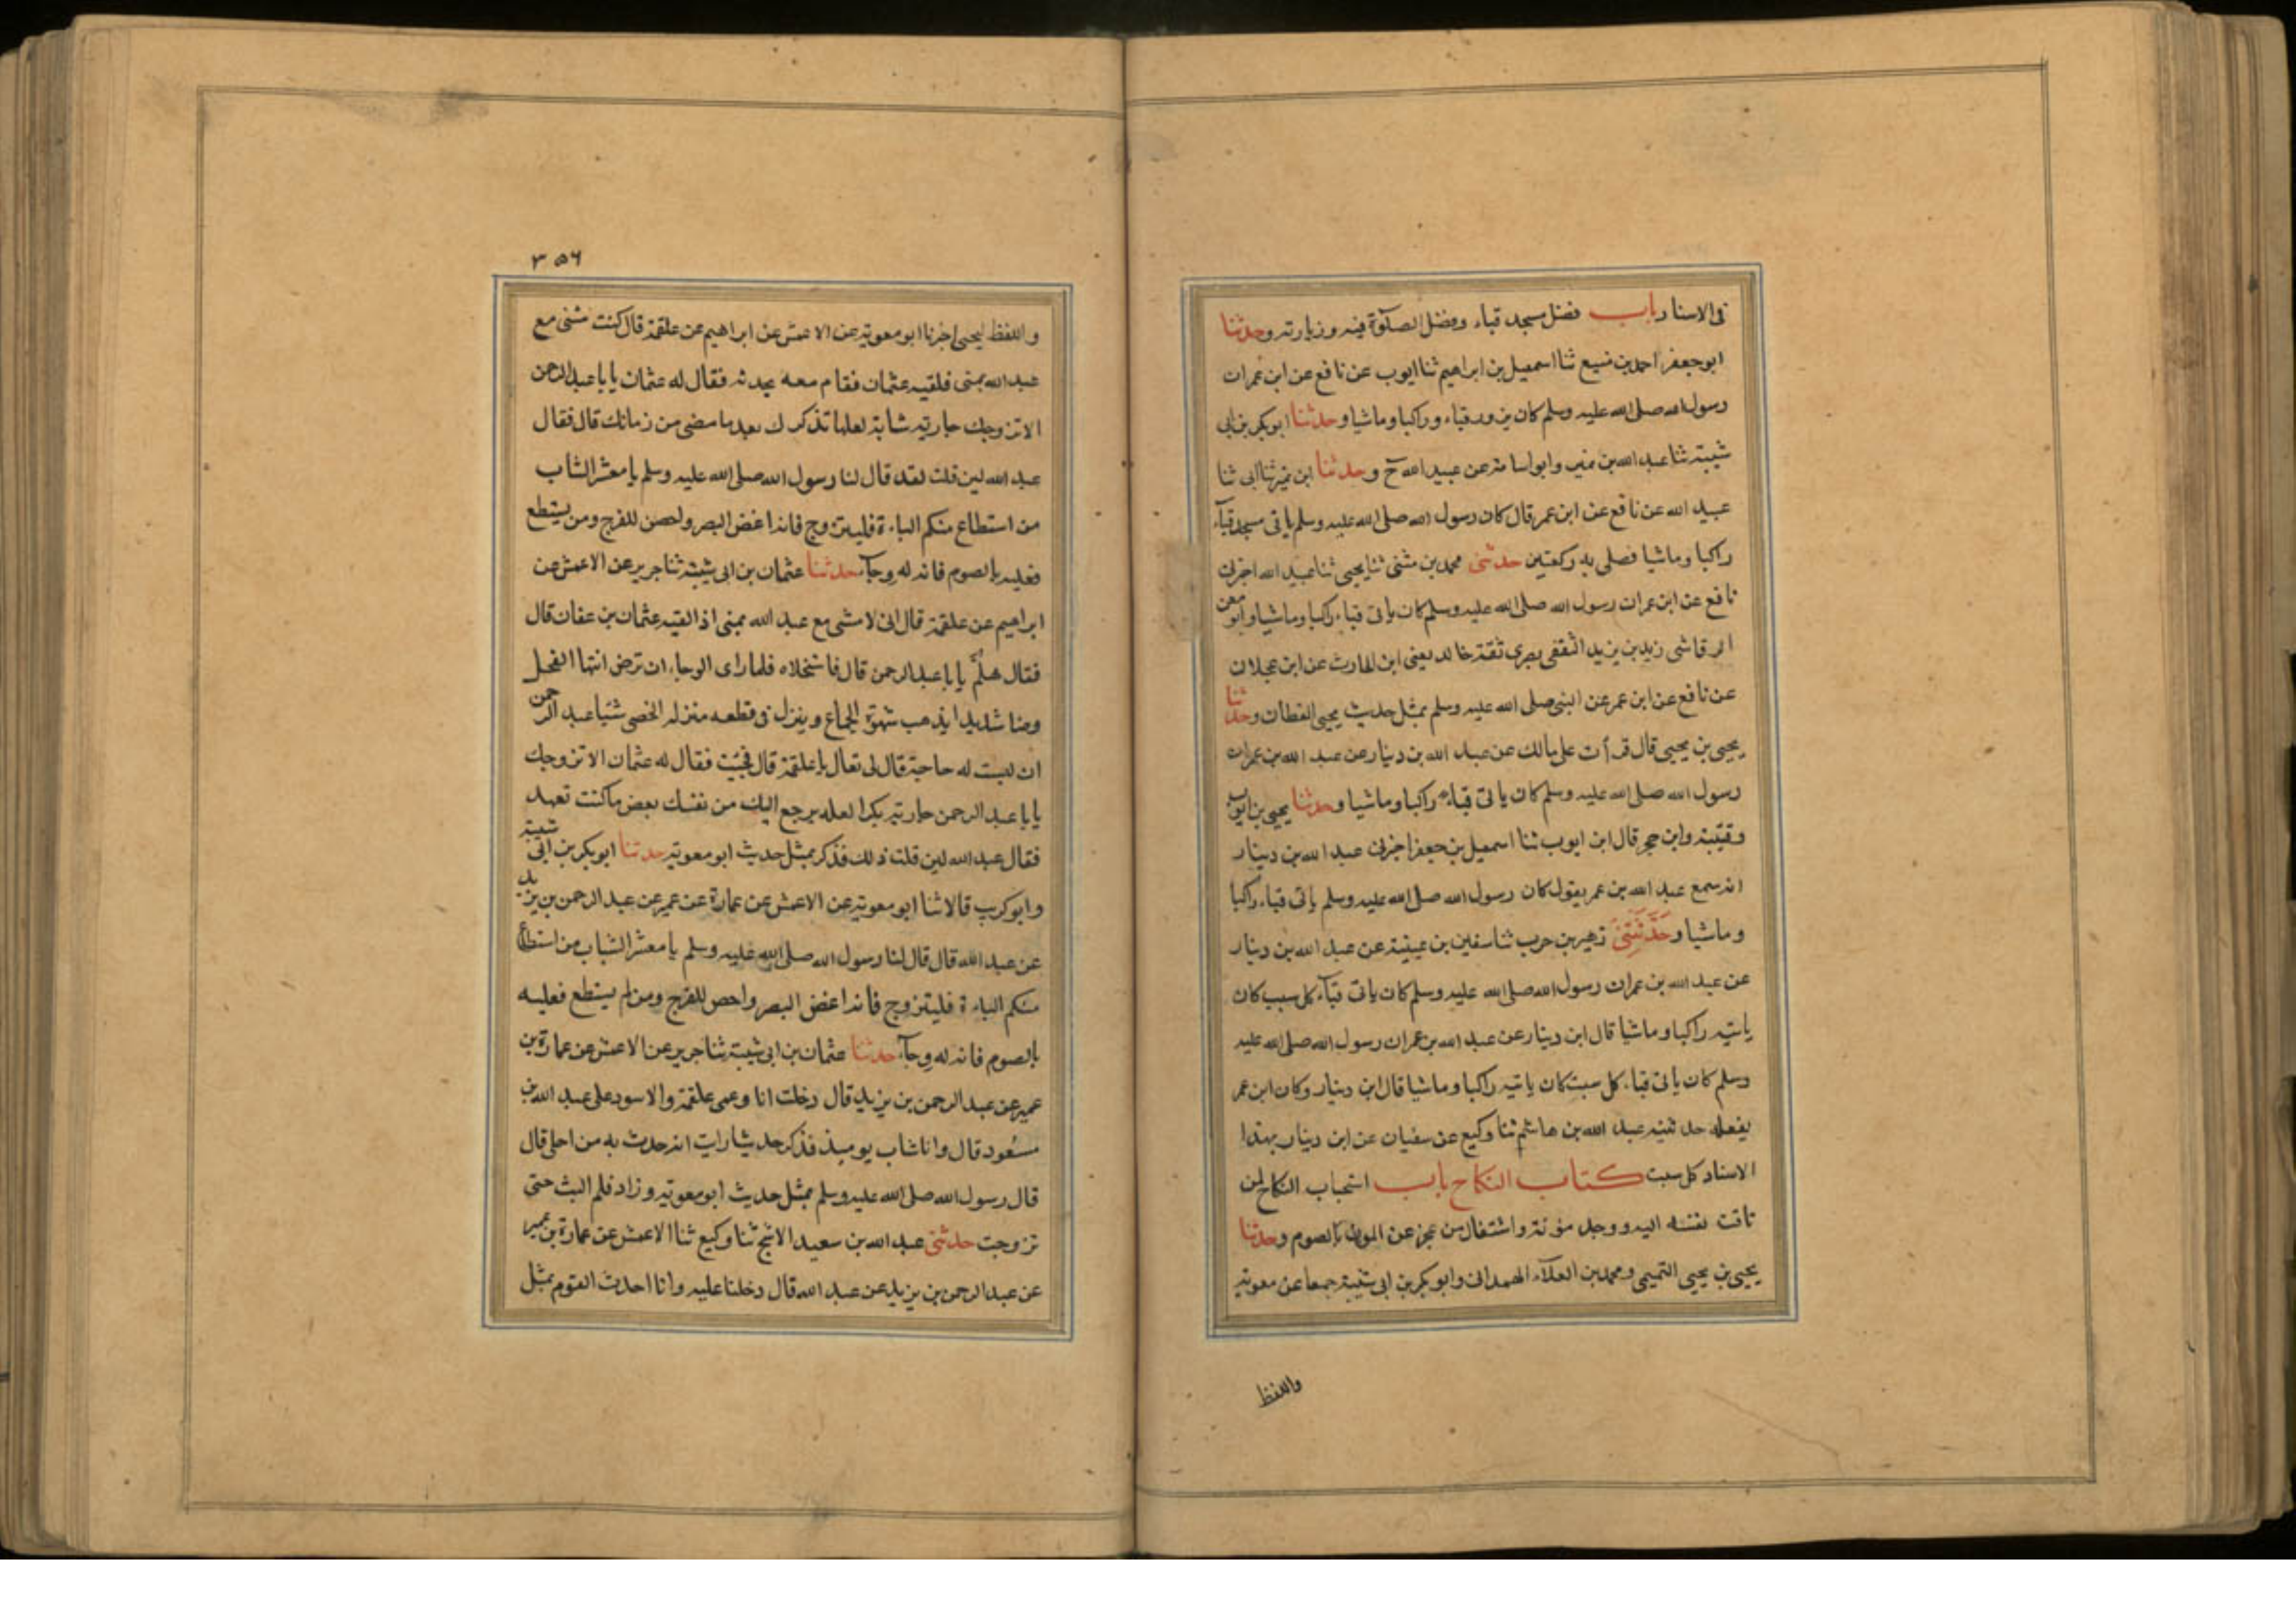 فى الاسناد باب فضل مسجد قباء وفضل الصلوة فيه وزيارته وحدثنا
ابو جعفر احمد بن منيع ثنا اسمعيل بن ابراهيم ثنا ايوب عن نافع عن ابن عمر ان
رسول الله صلى الله عليه وسلم كان يزور قباء وراكبا وماشيا وحدثنا ابو بكر بن ابى
شيبة ثنا عبد الله بن نمير وابو اسامة عن عبيد الله ح وحدثنا ابن نمير ثنا ابى ثنا
عبيد الله عن نافع عن ابن عمر قال كان رسول الله صلى الله عليه وسلم ياتى مسجد قبآء
راكبا وماشيا فصلى به ركعتين حدثنى محمد بن مثنى ثنا يحيى ثنا عبيد الله اخبرنى
نافع عن ابن عمر ان رسول الله صلى الله عليه وسلم كان ياتى قباء راكبا وماشيا وابو معن
الرقاشى زيد بن يزيد الثقفى بصرى ثقة خالد يعنى ابن الحارث عن ابن عجلان
عن نافع عن ابن عمر عن النبى صلى الله عليه وسلم بمثل حديث يحيى القطان وحدثنا
يحيى بن يحيى قال قرأت على مالك عن عبد الله بن دينار عن عبد الله بن عمر ان
رسول الله صلى الله عليه وسلم كان ياتى قباء راكبا وماشيا وحدثنا يحيى بن ايوب
وقتيبة وابن حجر قال ابن ايوب ثنا اسمعيل بن جعفر اخبرنى عبد الله بن دينار
انه سمع عبد الله بن عمر يقول كان رسول الله صلى الله عليه وسلم ياتى قباء راكبا
وماشيا وحَدَّثَنِى زهير بن حرب ثنا سفين بن عيينة عن عبد الله بن دينار
عن عبد الله بن عمر ان رسول الله صلى الله عليه وسلم كان ياتى قبآء كل سبب كان
ياتيه راكبا وماشيا قال ابن دينار عن عبد الله بن عمر ان رسول الله صلى الله عليه
وسلم كان ياتى قباء كل سبت كان ياتيه راكبا وماشيا قال ابن دينار وكان ابن عمر
يفعله حدثنيه عبد الله بن هاشم ثنا وكيع عن سفيان عن ابن دينار بهذا
الاسناد كل سبت كتاب النكاح باب استحباب النكاح لمن
تاقت نفسه اليه ووجد مؤنة واشتغال من عجز عن المون بالصوم وحدثنا
يحيى بن يحيى التميمى ومحمد بن العلآء الهمدانى وابو بكر بن ابى شيبة جمعا عن معوية
واللفظ
٣٥٦
واللفظ ليحيى اخبرنا ابو معوية عن الاعمش عن ابراهيم عن علقمة قال كنت مشى مع
عبد الله بمنى فلقيه عثمان فقام معه يحدثه فقال له عثمان يابا عبد الرحمن
الا تزوجك جارية شابة لعلها تذكرك بعد ما مضى من زمانك قال فقال
عبد الله لين قلت لقد قال لنا رسول الله صلى الله عليه وسلم يا معشر الشاب
من استطاع منكم الباءة فليتزوج فانه اغض البصر ولحصن للفرج ومن يستطع
فعليه بالصوم فانه له وجآء حدثنا عثمان بن ابى شيبة ثنا جرير عن الاعمش عن
ابراهيم عن علقمة قال انى لا مشى مع عبد الله بمنى اذ القيه عثمان بن عفان قال
فقال هلمّ يابا عبد الرحمن قال فاستخلاه فلما راى الوجاء ان ترض انتها الفحل
وضا شديدا يذهب شهوة الجماع وينزل فى قطعه منزلة الخصى شئيا عبد الرحمن
ان ليست له حاجة قال لى تعال يا علقمة قال فجئت فقال له عثمان الا تزوجك
يابا عبد الرحمن جارية بكرا لعله يرجع اليك من نفسك بعض ما كنت تعهد
فقال عبد الله لين قلت ذلك فذكر بمثل حديث ابو معوية حدثنا ابو بكر بن ابى شيبة
وابو كريب قالا ثنا ابو معوية عن الاعمش عن عمارة عن عمير عن عبد الرحمن بن يزيد
عن عبد الله قال قال لنا رسول الله صلى الله عليه وسلم يا معشر الشباب من استطاع
منكم الباءة فليتزوج فانه اغض البصر واحصن للفرج ومن لم يستطع فعليه
بالصوم فانه له وجآء حدثنا عثمان بن ابى شيبة ثنا جرير عن الاعمش عن عمارة بن
عمير عن عبد الرحمن بن يزيد قال دخلت انا وعمى علقمة والاسود على عبد الله بن
مسعود قال وانا شاب يوميذ فذكر حديثا رايت انه حدث به من اجلى قال
قال رسول الله صلى الله عليه وسلم بمثل حديث ابو معوية وزاد فلم البث حتى
تزوجت حدثنى عبد الله بن سعيد الاشج ثنا وكيع ثنا الاعمش عن عمارة بن عمير
عن عبد الرحمن بن يزيد عن عبد الله قال دخلنا عليه وانا احدث القوم بمثل